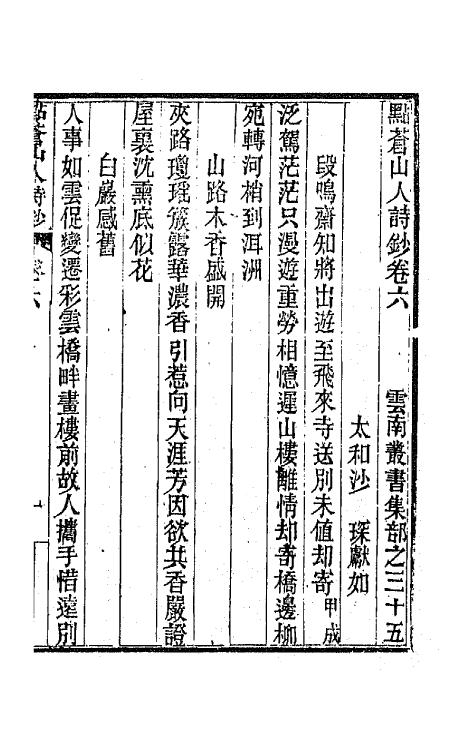 點蒼山人詩鈔卷六 雲南叢書集部之三十五
太和沙 琛獻如
段鳴齋知將出遊至飛來寺送別未值却寄甲戌
泛駕茫茫只漫遊重勞相憶遲山樓離情却寄橋邊柳
宛轉河梢到洱洲
山路木香盛開
夾路瓊瑶簇露華濃香引惹向天涯芳因欲共香嚴證
屋裏沈熏底似花
白巖感舊
人事如雲促變遷彩雲橋畔畫樓前故人攜手惜遠別
點蒼山人詩鈔 卷六 一